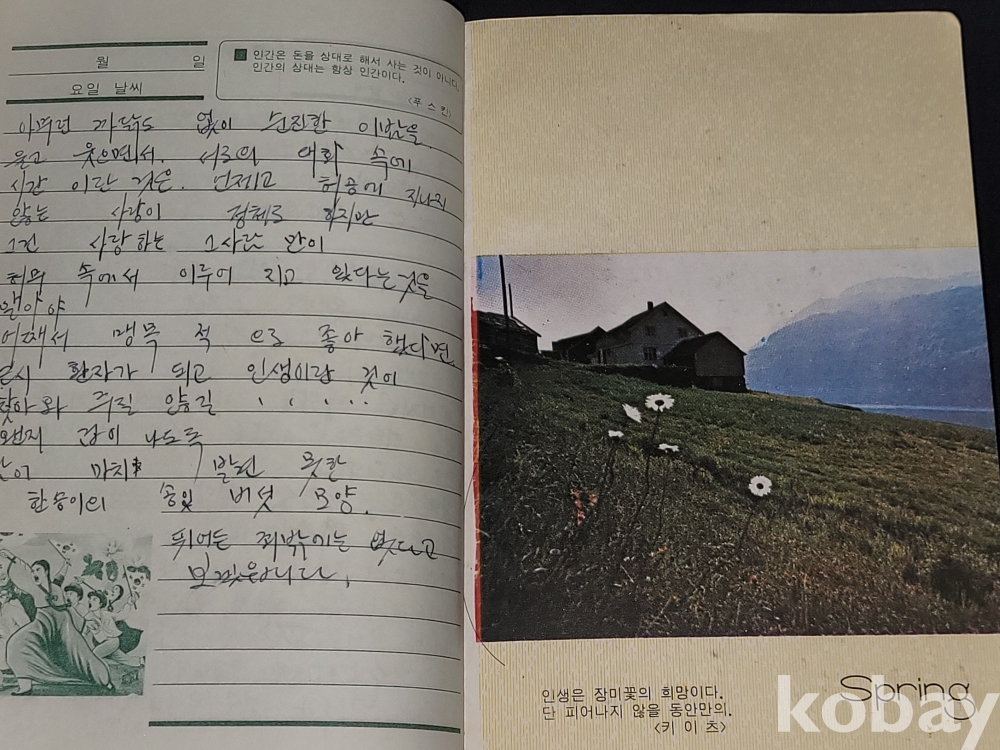 월 일
요일 날씨
인간은 돈을 상대로 해서 사는 것이 아니다.
인간의 상대는 항상 인간이다.
<푸 스 킨>
아무런 까닭도 없이 순진한 이밤을
울고 웃으면서. 서로의 대화 속에
시간 이란 것은. 언제고 허공에 지나지
않는 사랑이 정체로 하지만
그건 사랑하는 그사람 만이
허위 속에서 이루어 지고 있다는것을
알아야
어째서 맹목 적 으로 좋아 했다면
환자가 되고 인생이란 것이
찾아와 주질 않길 . . . . .
왠지 겁이 나도록
마치 발견 못한
한송이의 송잎 버섯 모양.
뛰어든 죄밖에는 없다고
보겠읍니다.
인생은 장미꽃의 희망이다.
단 피어나지 않을 동안만의.
<키 이 츠>
Spring
kobay